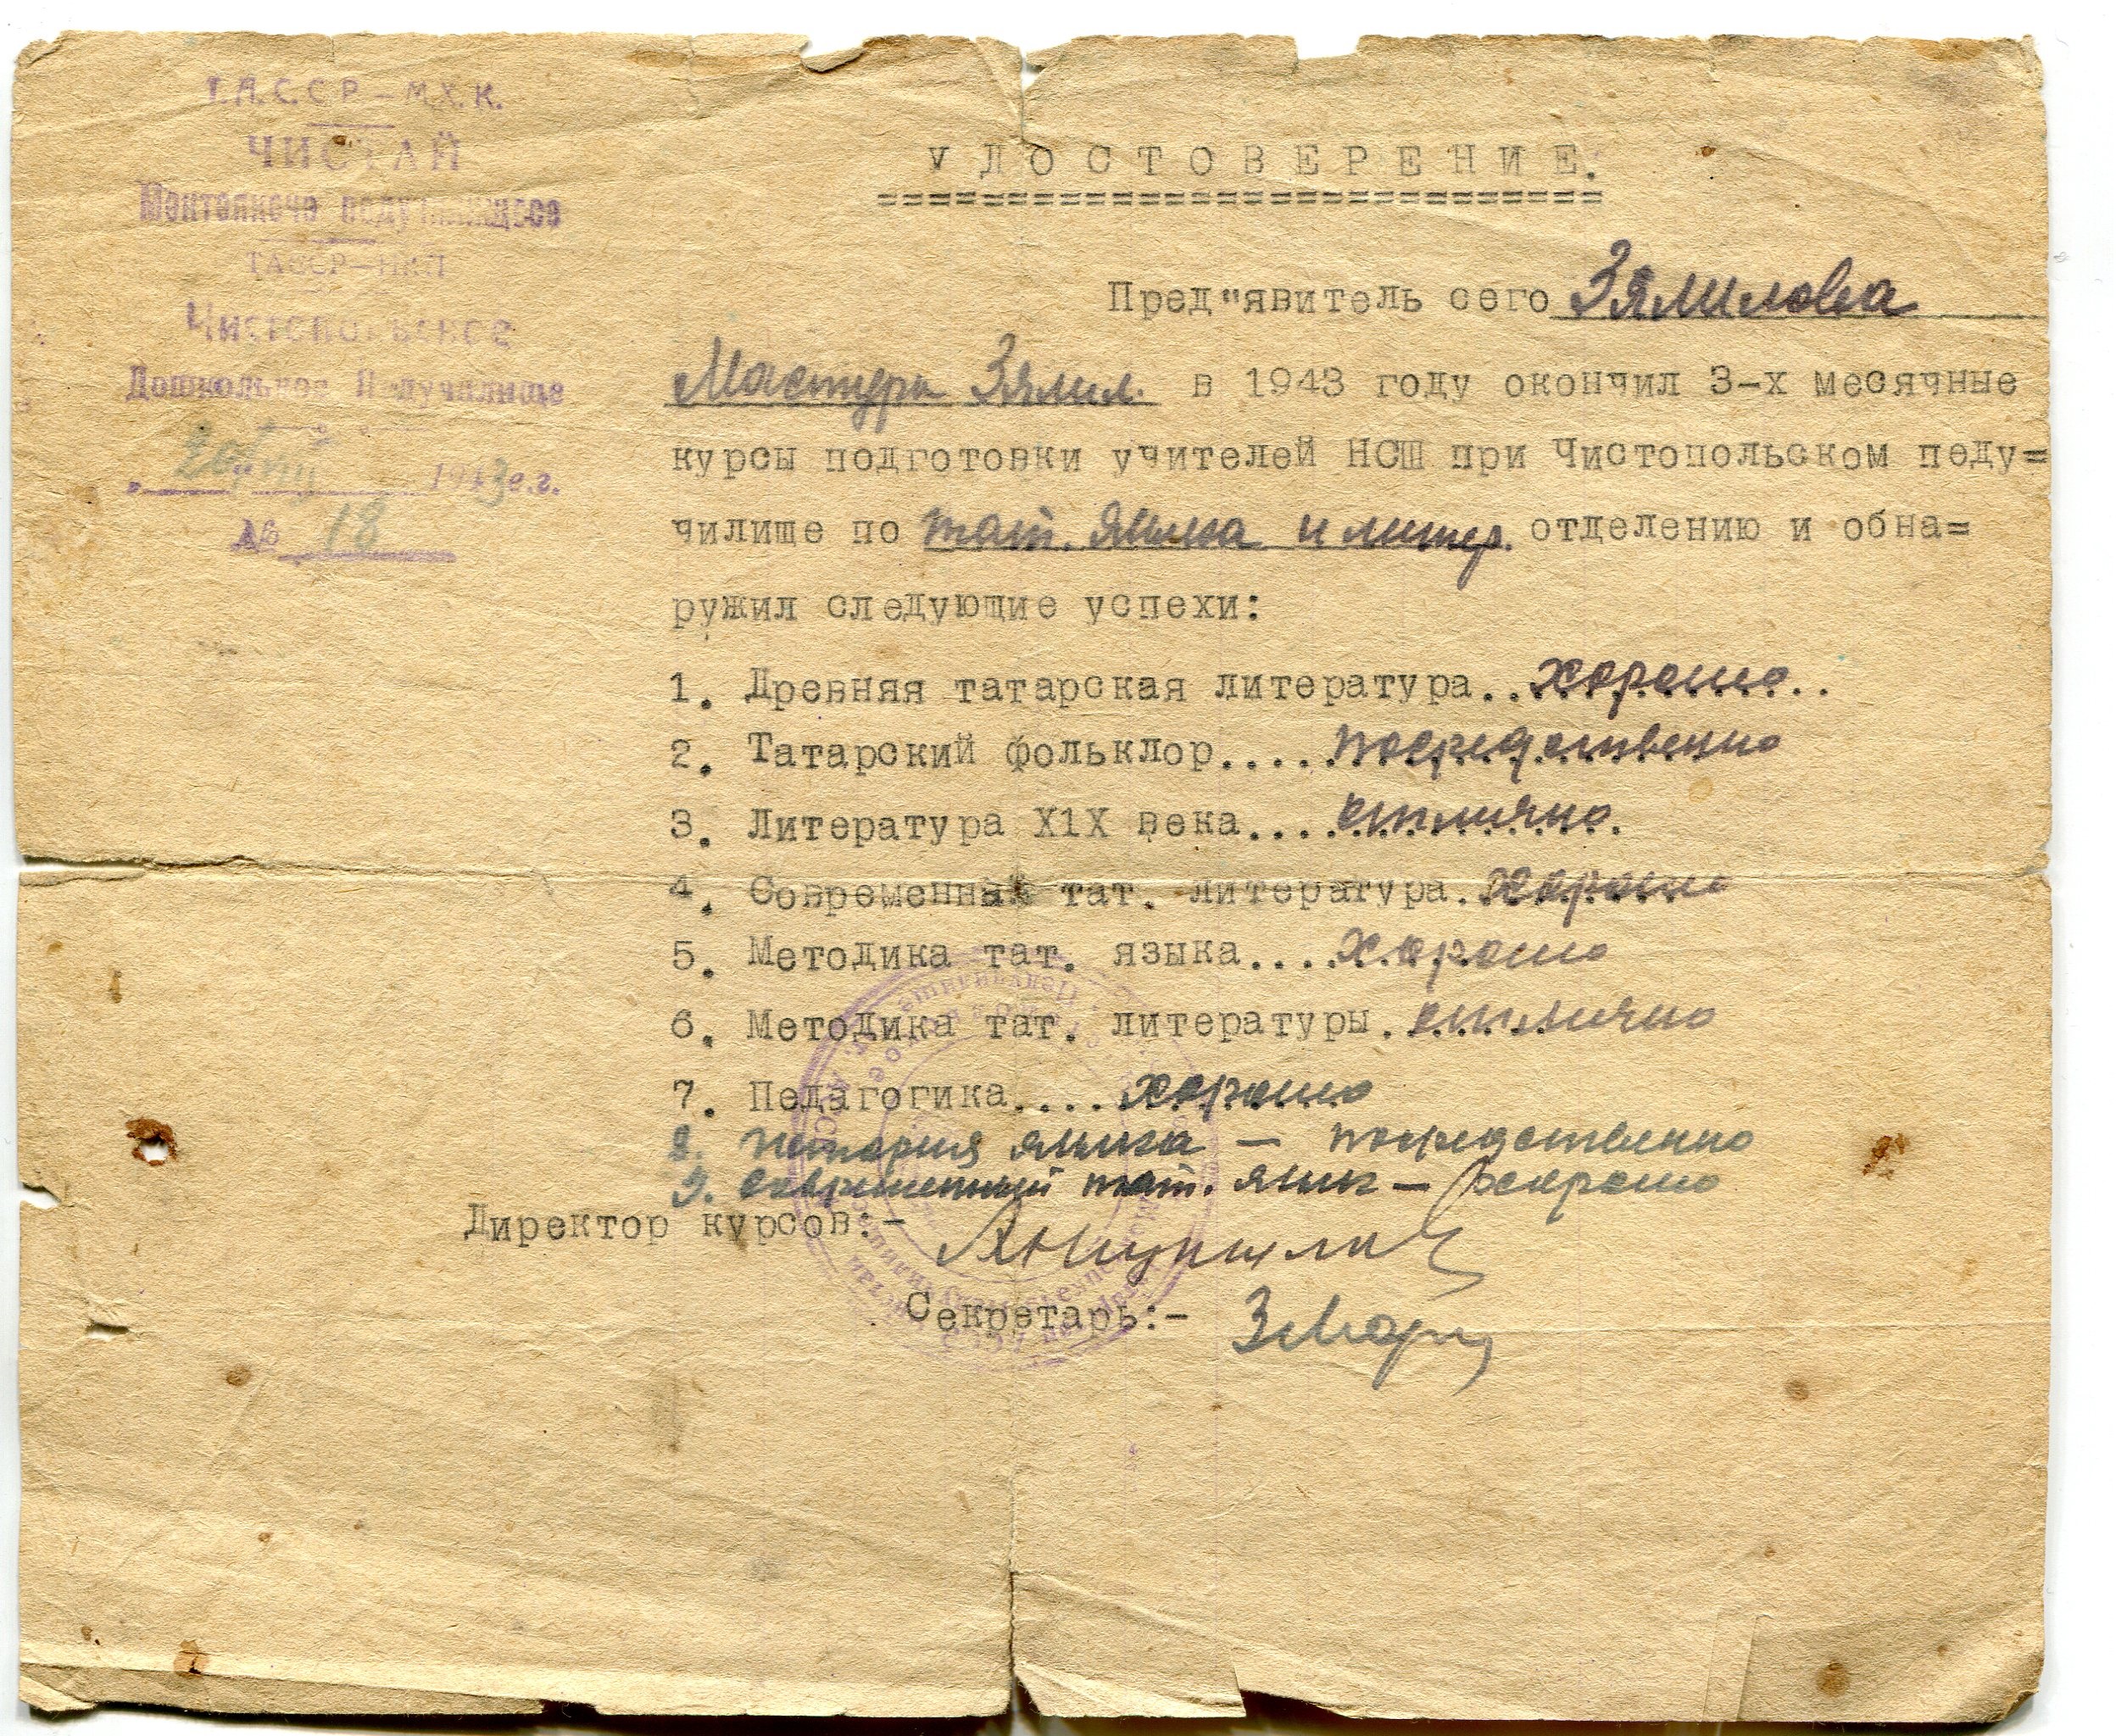 Т.А.С.С.Р – М.Х.К.
ЧИСТАЙ
Мәктәпкәчә педучилищесе
ТАССР–НКП
Чистопольское
Дошкольное Педучилище
1943 г.
№ 18
УДОСТОВЕРЕНИЕ.
Пред"явитель сего Зялилова
Мастура Зялил. в 1943 году окончил 3-х месячные
курсы подготовки учителей НСШ при Чистопольском педу=
чилище по тат. языка и литер. отделению и обна=
ружил следующие успехи:
1. Древняя татарская литература..хорошо..
2. Татарский фольклор.....посредственно
3. Литература Х1Х века....отлично.
4. Современная тат. литература.хорошо
5. Методика тат. языка....хорошо
6. Методика тат. литературы.отлично
7. Педагогика....хорошо
8. история языка – посредственно
9. современный тат. язык – хорошо
Директор курсов:-
Секретарь:-